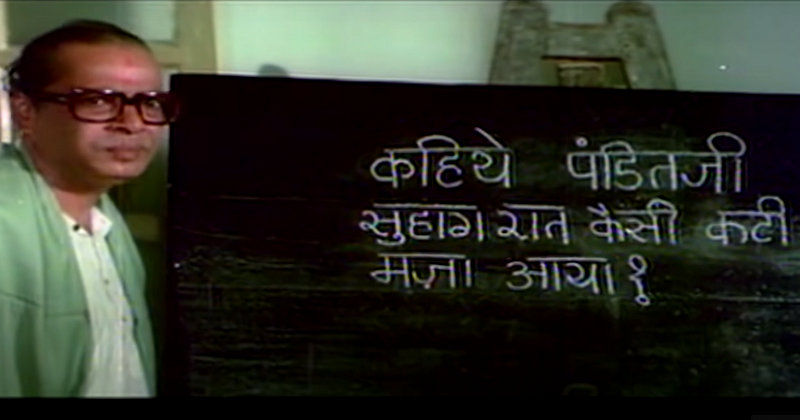 कहिये पंडितजी
सुहाग रात कैसी कटी
मज़ा आया?